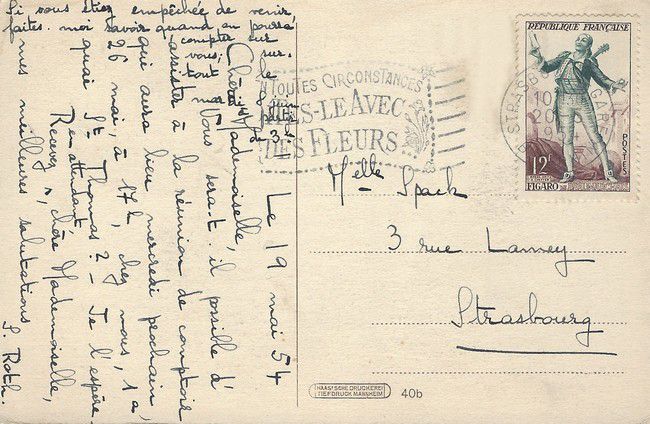 Le 19 mai 54
Chère Mademoiselle,
Vous serait-il possible d'
assister à la réunion de comptoir
qui aura lieu mercredi prochain,
26 mai, à 17 h, chez nous, 1a,
quai St Thomas ? – Je l'espère.
En attendant
Recevez, chère Mademoiselle,
mes meilleures salutations
S. Roth
Si vous étiez empêchée de venir
faites-moi savoir quand on pourra
compter sur
vous;
tout sur
mardi
le
REPUBLIQUE FRANÇAISE
POSTES
12F
FIGARO
STRASBOURG
TOUTES CIRCONSTANCES
DITES-LE AVEC
DES FLEURS
Melle Spack
3 rue Lamey
Strasbourg
HAAS'SCHE DRUCKEREI
TIEFDRUCK MANNHEIM
40b